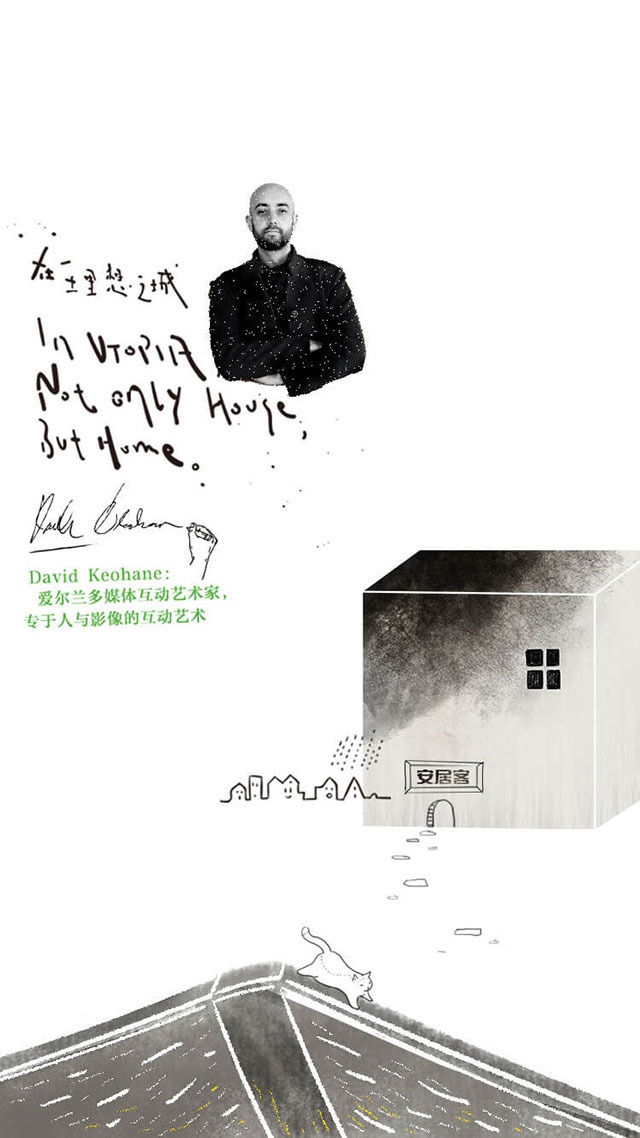 在理想之城
In UTOPIA,
Not only House,
But Home。
David Keohane:
爱尔兰多媒体互动艺术家，
专于人与影像的互动艺术
安居客